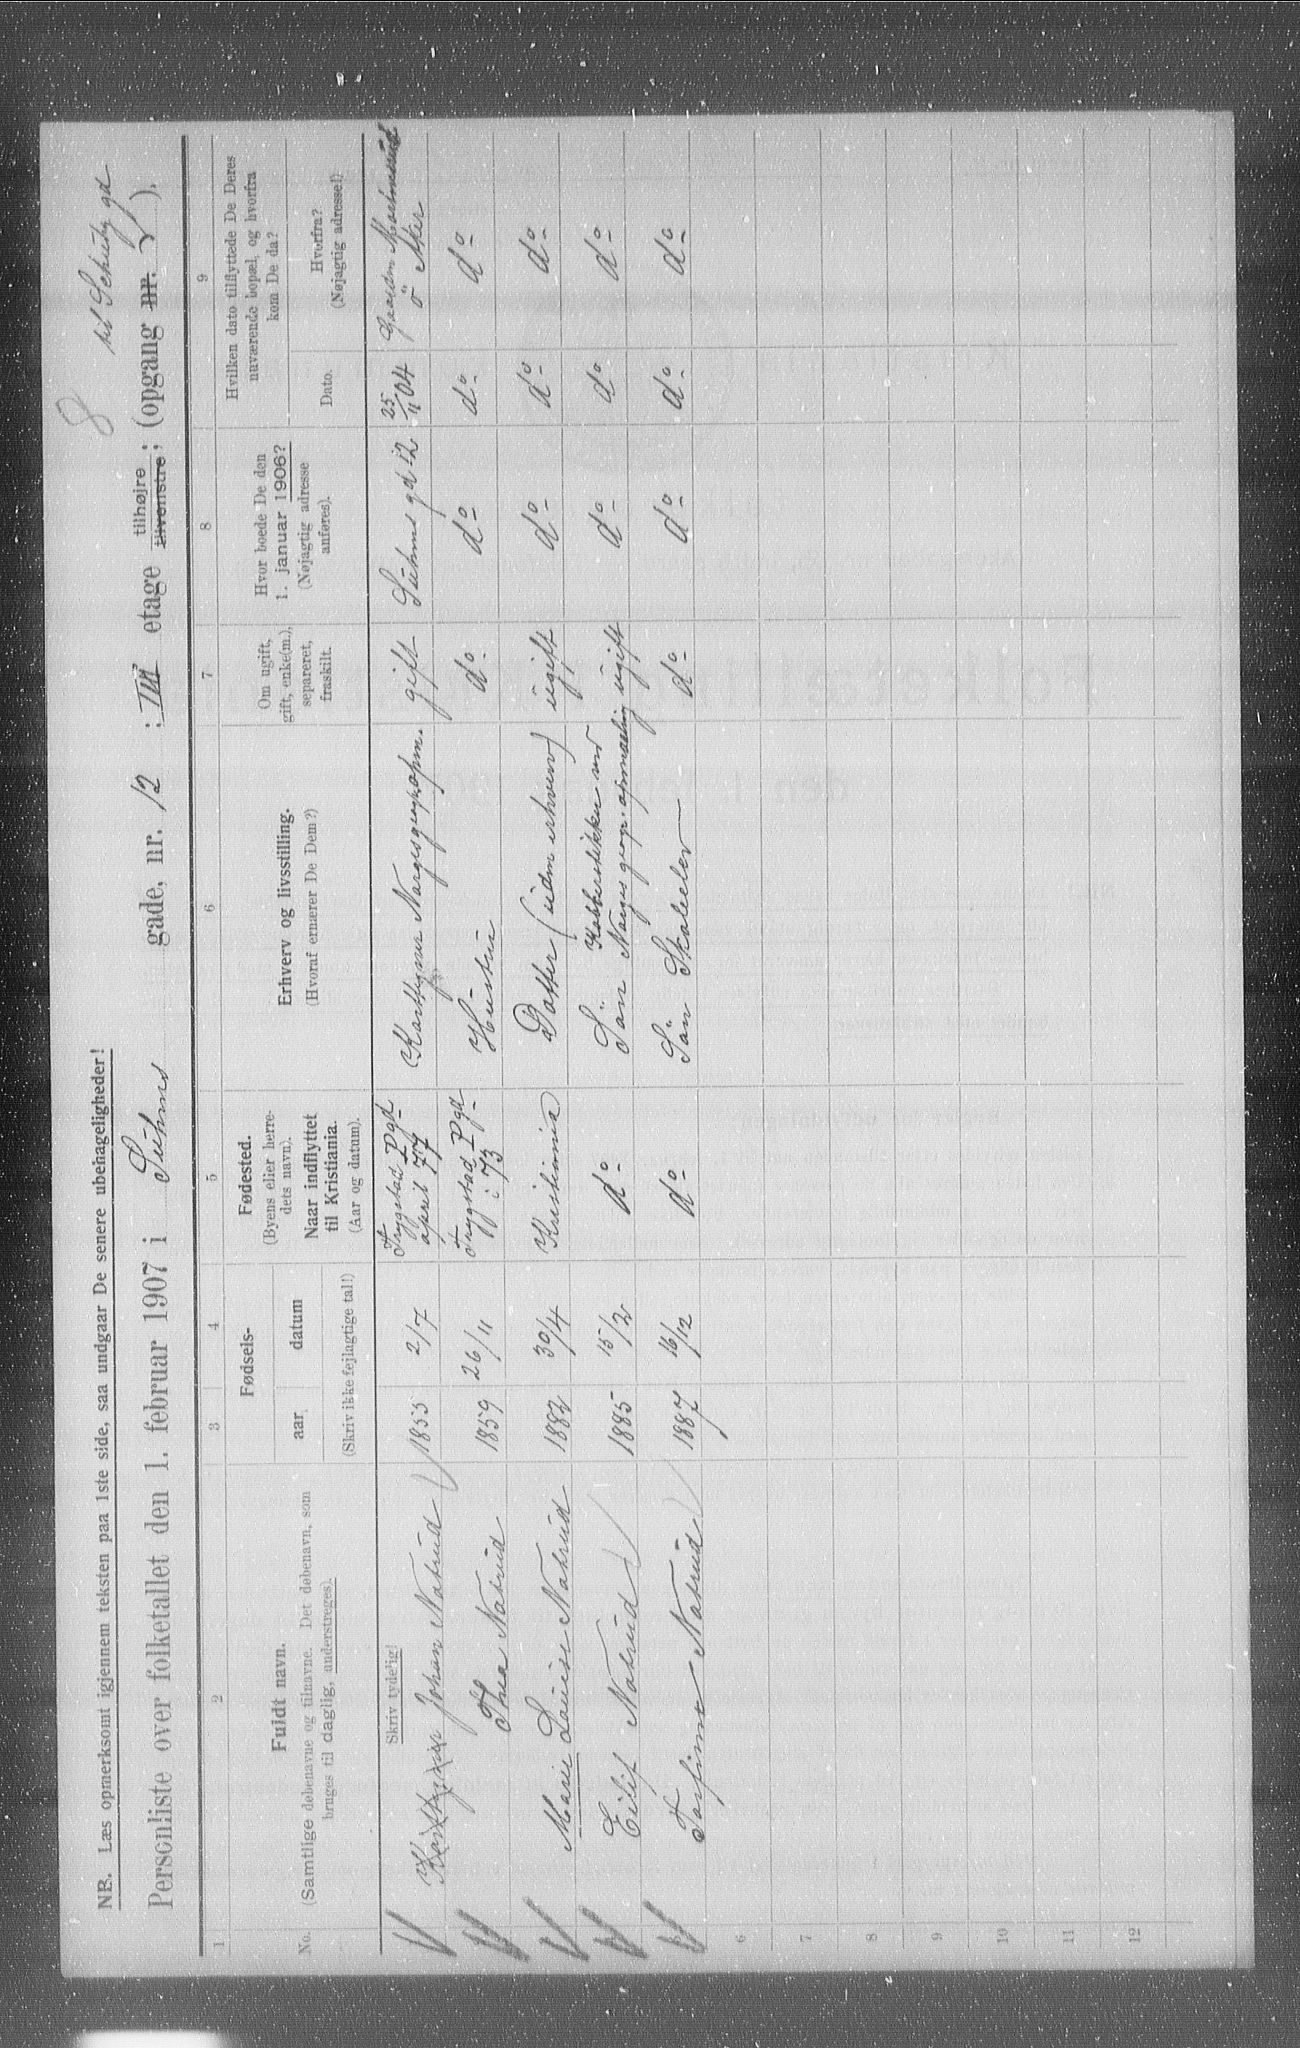 8 til Schultz gd
NB. Læs opmerksomt igjennem teksten paa 1ste side, saa undgaar De senere ubehageligheder!
Personliste over folketallet den 1. februar 1907 i Suhms gade, nr. 12 : III etage tilhøjre tilvenstre; (opgang nr. ).
1 2 3 4 5 6 7 8 9
No.
Fuldt navn.
(Samtlige døbenavne og tilnavne. Det døbenavn, som
bruges til daglig, understreges).
Fødsels-
aar datum
(Skriv ikke fejlagtige tal!)
Fødested.
(Byens eller herre-
dets navn).
Naar indflyttet
til Kristiania.
(Aar og datum).
Erhverv og livsstilling.
(Hvoraf ernærer De Dem?)
Om ugift,
gift, enke(m.),
separeret,
fraskilt.
Hvor boede De den
1. januar 1906?
(Nøjagtig adresse
anføres).
Hvilken dato tilflyttede De Deres
nuværende bopæl, og hvorfra
kom De da?
Dato.
Hvorfra?
(Nøjagtig adresse!)
Skriv tydelig!
Johan Natrud 1855 2/7 Trygstad Pgd april 77 Norges geogr. opm. gift Suhms gd 12 25/11 04 Gaarden ö Aker
Thea Natrud 1859 26/11 Trygstad Pgd i 73 Hustru do do do do
Marie Louise Natrud 1882 30/4 Kristiania Datter (uden erhverv) ugift do do do
Eilif Natrud 1885 15/2 do Sön Kobberstikker ved Norges geogr. opmaaling ugift do do do
Torfinn Natrud 1887 16/12 do Sön Skoleelev do do do do
6
7
8
9
10
11
12